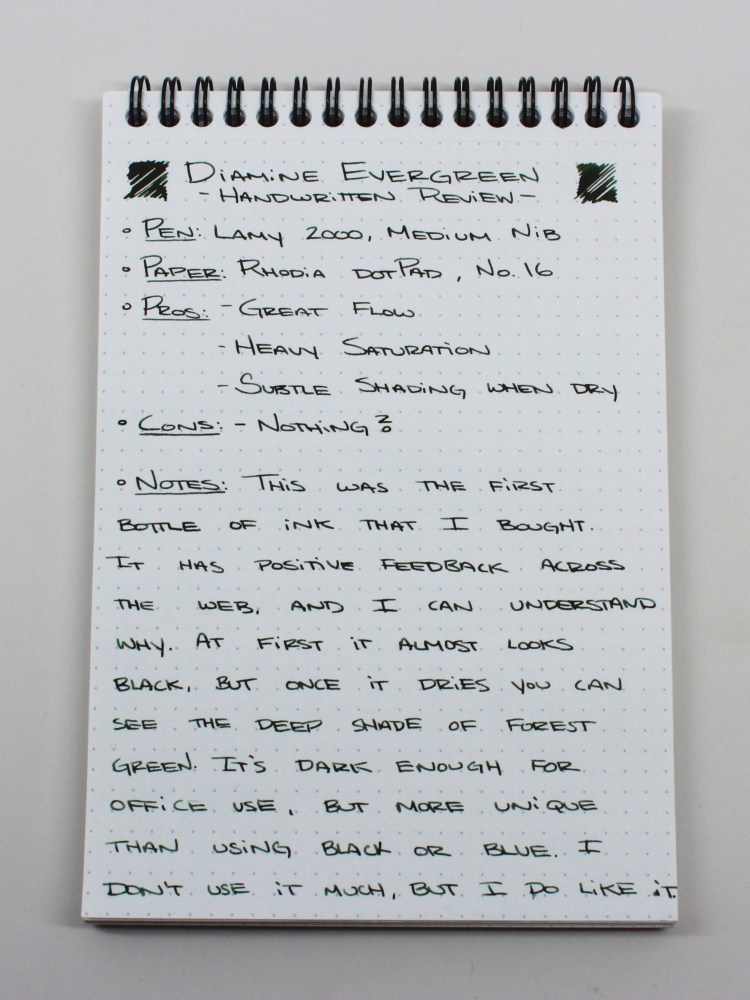 Diamine Evergreen
- Handwritten Review -
• Pen: Lamy 2000, Medium Nib
• Paper: Rhodia dotPad, No. 16
• Pros: - Great Flow
- Heavy Saturation
- Subtle Shading when dry
• Cons: - Nothing?
• Notes: This was the first
bottle of ink that I bought.
It has positive feedback across
the web, and I can understand
why. At first it almost looks
black, but once it dries you can
see the deep shade of forest
green. It's dark enough for
office use, but more unique
than using black or blue. I
don't use it much, but I do like it.